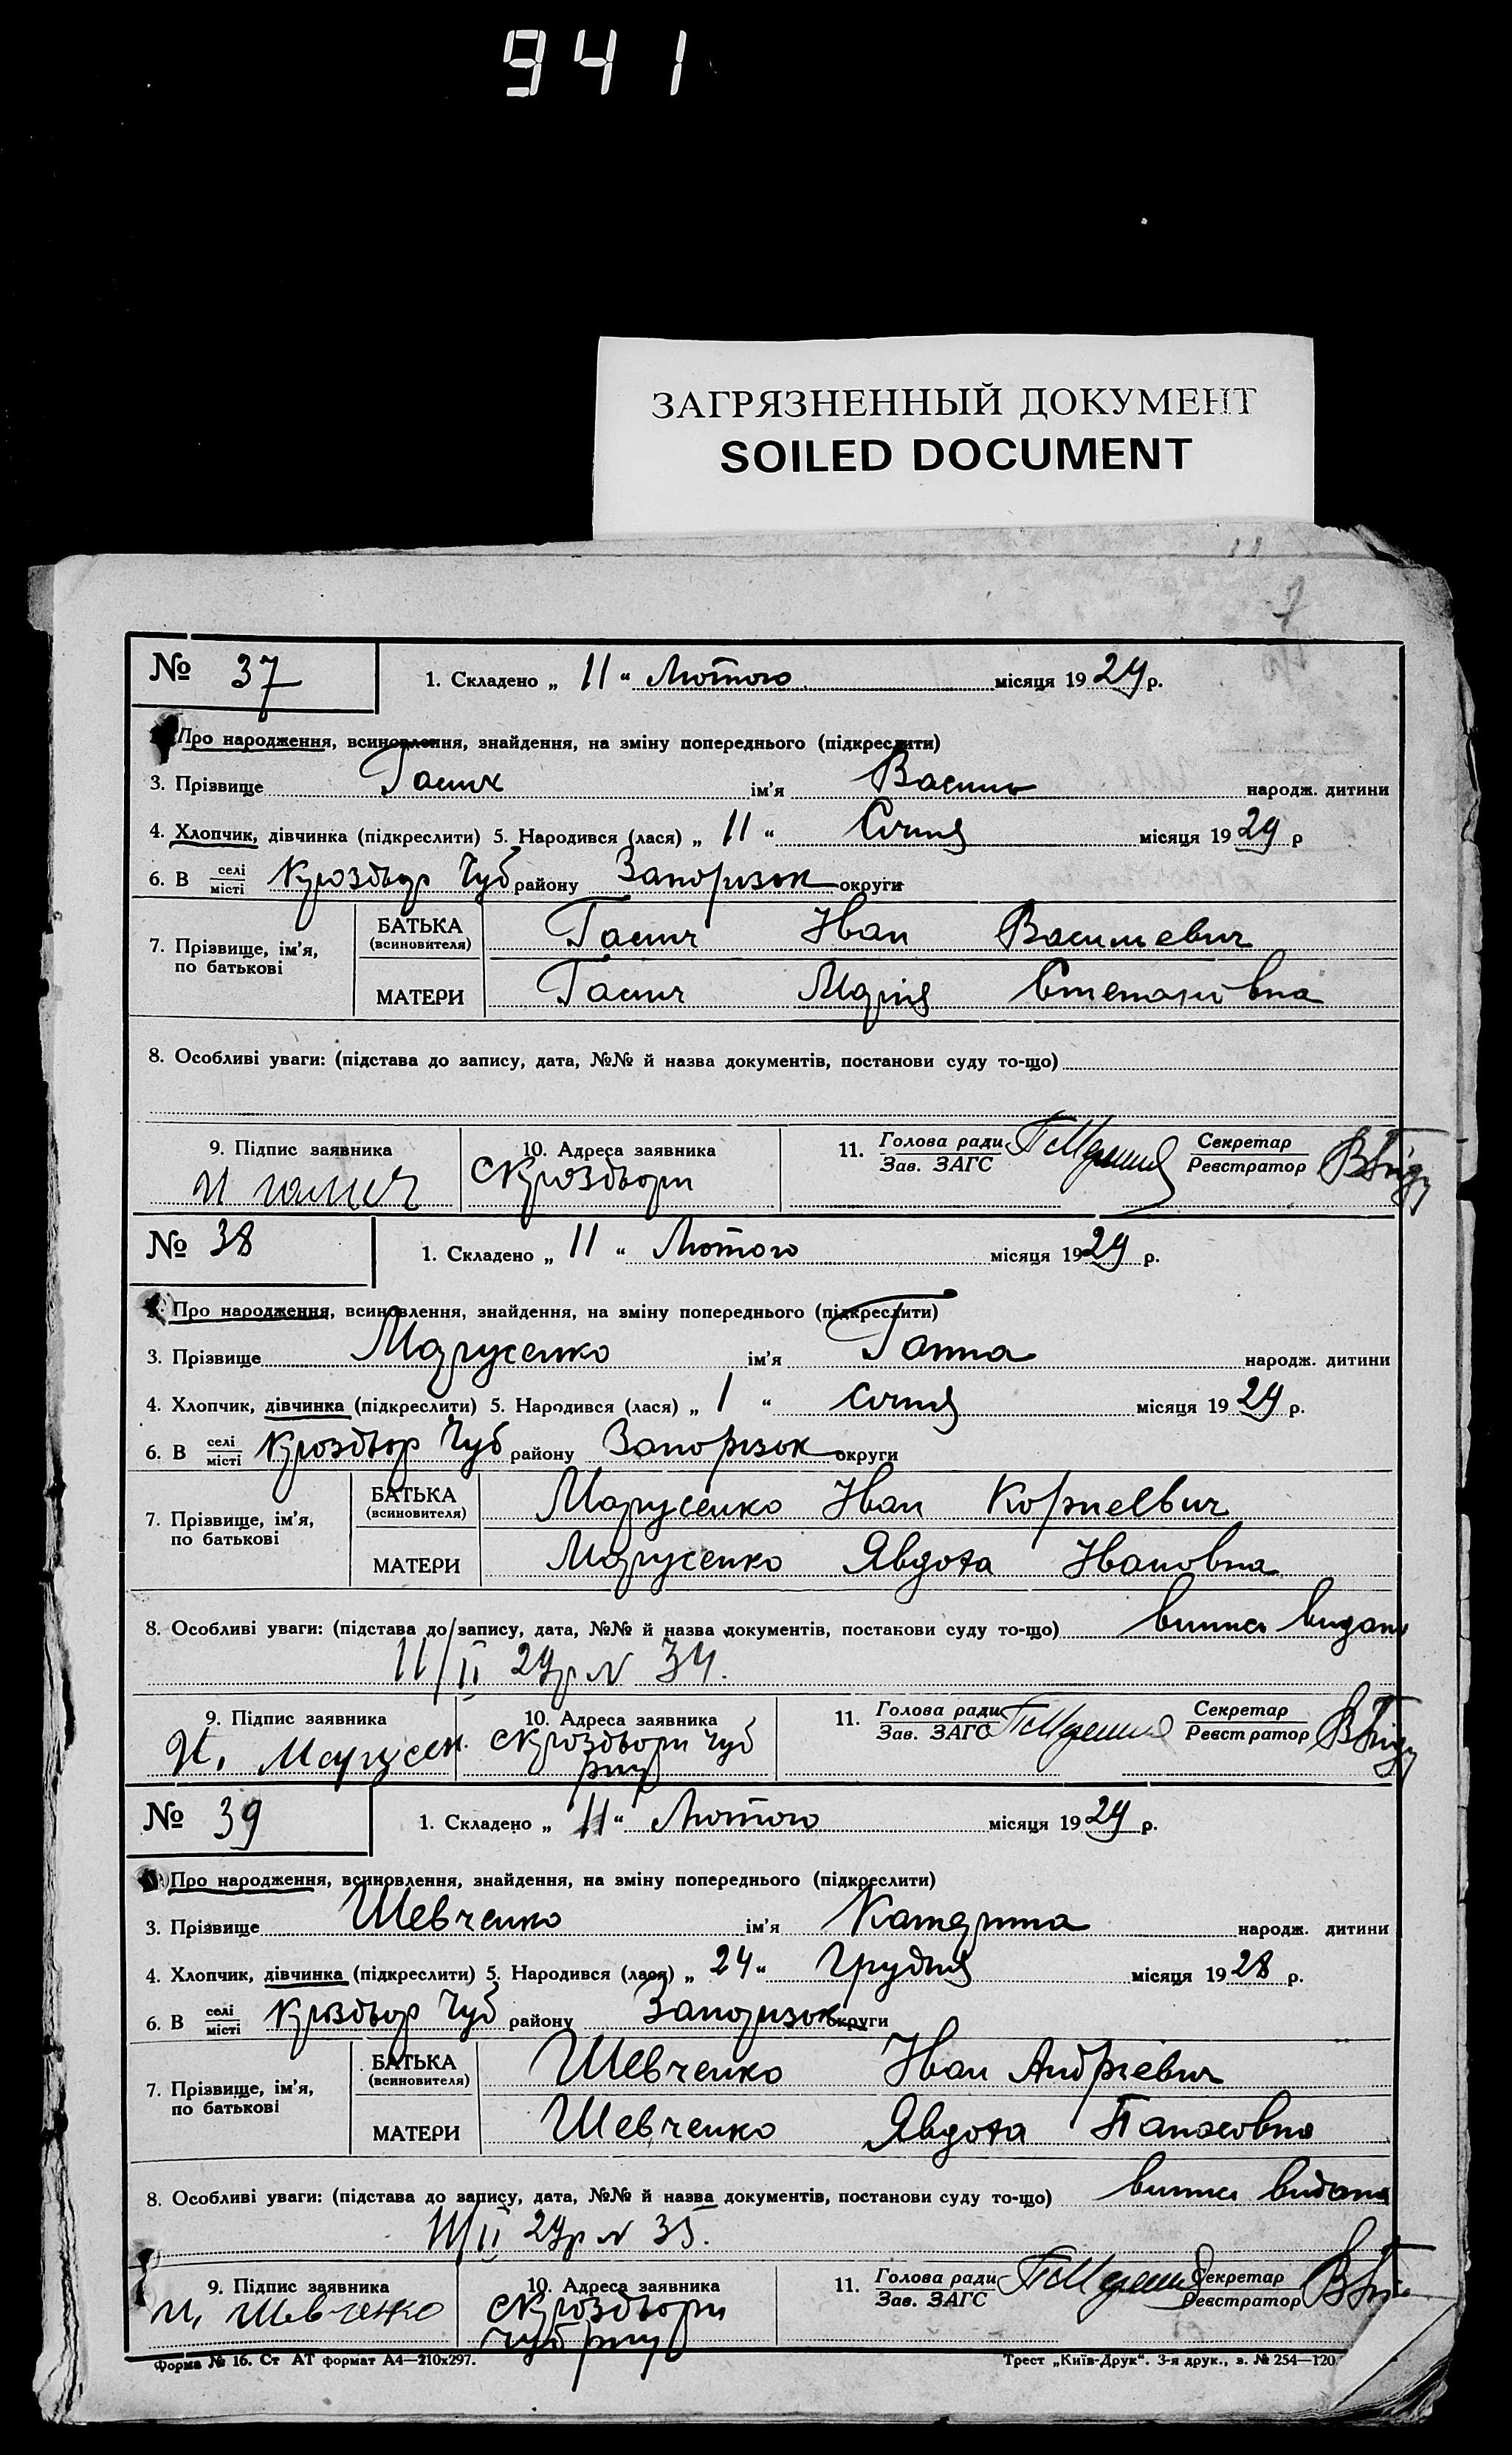 941
ЗАГРЯЗНЕННЫЙ ДОКУМЕНТ
SOILED DOCUMENT
№ 37 1. Складено „ 11 “ Лютого місяця 1929 р.
Про народження, всиновлення, знайдення, на зміну попереднього (підкреслити)
3. Прізвище ім'я Василь народж. дитини
4. Хлопчик, дівчинка (підкреслити) 5. Народився (лася) „ 11 “ Січня місяця 1929 р
6. В селі місті Чуб району Запорізок округи
7. Прізвище, ім'я, по батькові
БАТЬКА (всиновителя) Іван Васильевич
МАТЕРИ Марія Степановна
8. Особливі уваги: (підстава до запису, дата, №№ й назва документів, постанови суду то-що)
9. Підпис заявника 10. Адреса заявника 11. Голова ради Зав. ЗАГС Секретар Реєстратор
№ 38 1. Складено „ 11 “ Лютого місяця 1929 р.
2. Про народження, всиновлення, знайдення, на зміну попереднього (підкреслити)
3. Прізвище Марусенко ім'я Ганна народж. дитини
4. Хлопчик, дівчинка (підкреслити) 5. Народився (лася) „ 1 “ січня місяця 1929 р.
6. В селі місті Чуб району Запорізок округи
7. Прізвище, ім'я, по батькові
БАТЬКА (всиновителя) Марусенко Іван Корнієвич
МАТЕРИ Марусенко Явдоха Івановна
8. Особливі уваги: (підстава до запису, дата, №№ й назва документів, постанови суду то-що) випись видана
11/II 29р N 34.
9. Підпис заявника 10. Адреса заявника 11. Голова ради Зав. ЗАГС Секретар Реєстратор
И. Марусен
№ 39 1. Складено „ 11 “ Лютого місяця 1929 р.
Про народження, всиновлення, знайдення, на зміну попереднього (підкреслити)
3. Прізвище Шевченко ім'я Катерина народж. дитини
4. Хлопчик, дівчинка (підкреслити) 5. Народився (лася) „ 24 “ Грудня місяця 1928 р.
6. В селі місті Чуб району Запорізок округи
7. Прізвище, ім'я, по батькові
БАТЬКА (всиновителя) Шевченко Іван Андрієвич
МАТЕРИ Шевченко Явдоха Панасовна
8. Особливі уваги: (підстава до запису, дата, №№ й назва документів, постанови суду то-що) випись видана
11/II 29р N 35.
9. Підпис заявника 10. Адреса заявника 11. Голова ради Зав. ЗАГС Секретар Реєстратор
И, Шевченко
Форма № 16. Ст АТ формат А4—210х297. Трест „Київ-Друк“. 3-я друк., з. № 254—120